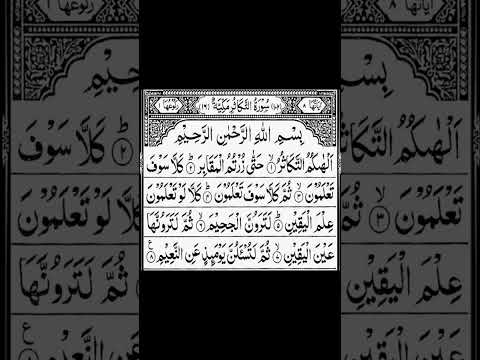 اٰيَاتُهَا ٨ (١٠٢) سُوْرَةُ التَّكَاثُرِ مَكِّيَّةٌ (١٦) رُكُوْعُهَا ١
بِسْمِ اللهِ الرَّحْمٰنِ الرَّحِيْمِ
اَلْهٰىكُمُ التَّكَاثُرُ ۙ﴿١﴾ حَتّٰى زُرْتُمُ الْمَقَابِرَ ؕ﴿٢﴾ كَلَّا سَوْفَ
تَعْلَمُوْنَ ۙ﴿٣﴾ ثُمَّ كَلَّا سَوْفَ تَعْلَمُوْنَ ؕ﴿٤﴾ كَلَّا لَوْ تَعْلَمُوْنَ
عِلْمَ الْيَقِيْنِ ؕ﴿٥﴾ لَتَرَوُنَّ الْجَحِيْمَ ۙ﴿٦﴾ ثُمَّ لَتَرَوُنَّهَا
عَيْنَ الْيَقِيْنِ ۙ﴿٧﴾ ثُمَّ لَتُسْـَٔلُنَّ يَوْمَىِٕذٍ عَنِ النَّعِيْمِ ﴿٨﴾ ع